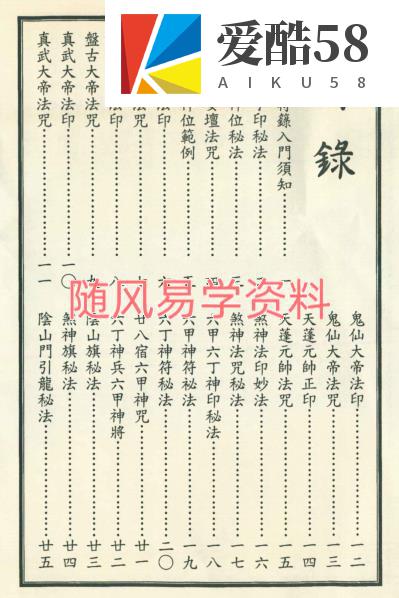 爱酷58
AIKU58
錄
錄入門須知……一
印秘法
位秘法……三
壇法咒……四
位範例……五
法印……六
法咒
法印……八
盤古大帝法咒……九
真武大帝法印……一〇
真武大帝法咒……一一
鬼仙大帝法印……一二
鬼仙大帝法咒……一三
天蓬元帥正印……一四
天蓬元帥法咒……一五
煞神法印妙法……一六
煞神法咒秘法……一七
六甲六丁神印秘法……一八
六甲神符秘法……一九
六丁神符秘法……二〇
廿八宿六甲神咒……廿一
六丁神兵六甲神將……廿二
陰山旗秘法……廿三
煞神旗秘法……廿四
陰山門引龍秘法……廿五
随风易学资料